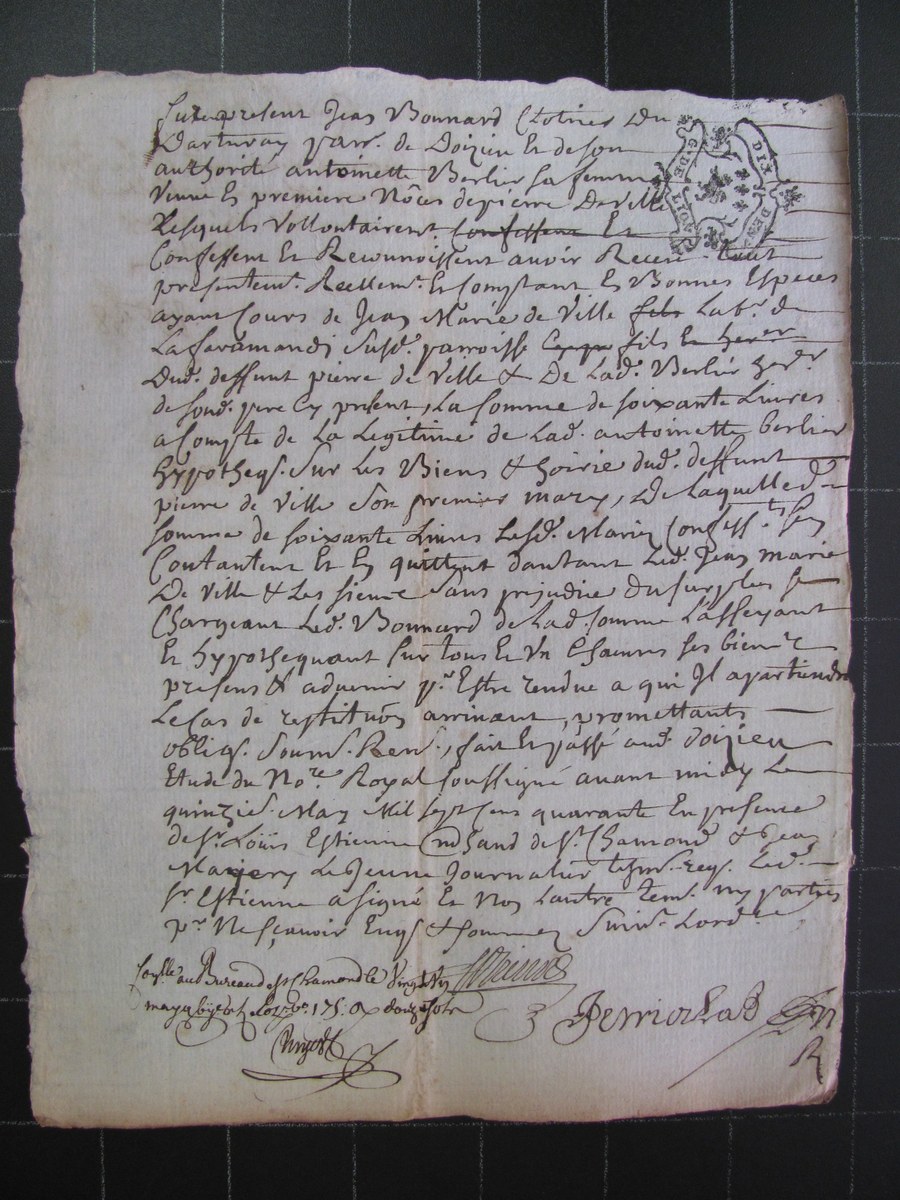 fut present Jean Bonnard Clotrier Du
Darturay parr. de Doizieu Et de son
authorité antoinette Berlier sa femme
veuve En premiere Nôces de pierre De Ville
Lesquels Vollontairement Confessent Et
Confessent Et Reconnoissent avoir Receu tout
presentemt. Reellemt. Et Comptant En Bonnes Especes
ayant Cours de Jean Marie de Ville fils Labr. de
La susd. parroisse fils Et herer
Dud. deffunt pierre de Ville & De Lad. Berlié herer.
de sond. pere Cy present, La somme de soixante Livres
a Compte de La Legitime de Lad. antoinette berlier
hypotheqs. sur Les Biens & hoirie dud. deffunt
pierre de Ville son premier mary, De Laquelle de
somme de soixante Livres Lesd. Mariez Confesst. sen
Contantent Et En quittent d'autant Led. Jean marie
De Ville & Les siens sans prejudice du surplus se
Chargeant Led. Bonnard de Lad. somme L'asseyant
Et hypothequant sur tous Et Un Chacuns ses biens
presens & advenir pr. Estre rendue a qui Il apartiendra
Le Cas de restituôn arrivant, promettants
obligs. soums. Rens., fait Et passé aud. doizieu
Etude du Nore. Royal soussigné avant midy Le
quinzie. May Mil sept cens quarante En presence
de sr. Loüis Estienne Mchand de St. Chamond & Jean
Mazery Le Jeune Journalier tesms. reqs. Led.
sr. Estienne a signé Et Non Lautre tem. ny parties
pr. Ne sçavoir Enqs. & sommez suivt. Lord.ce
DIX DEN
G. DE LION
Estienne
Conllé au Bureau de St Chamond le vingt
may